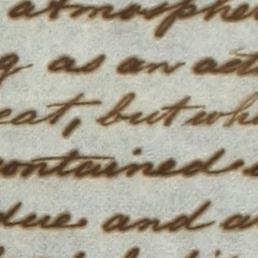 atmosphe
g as an act
eat, but whe
contained
due and a